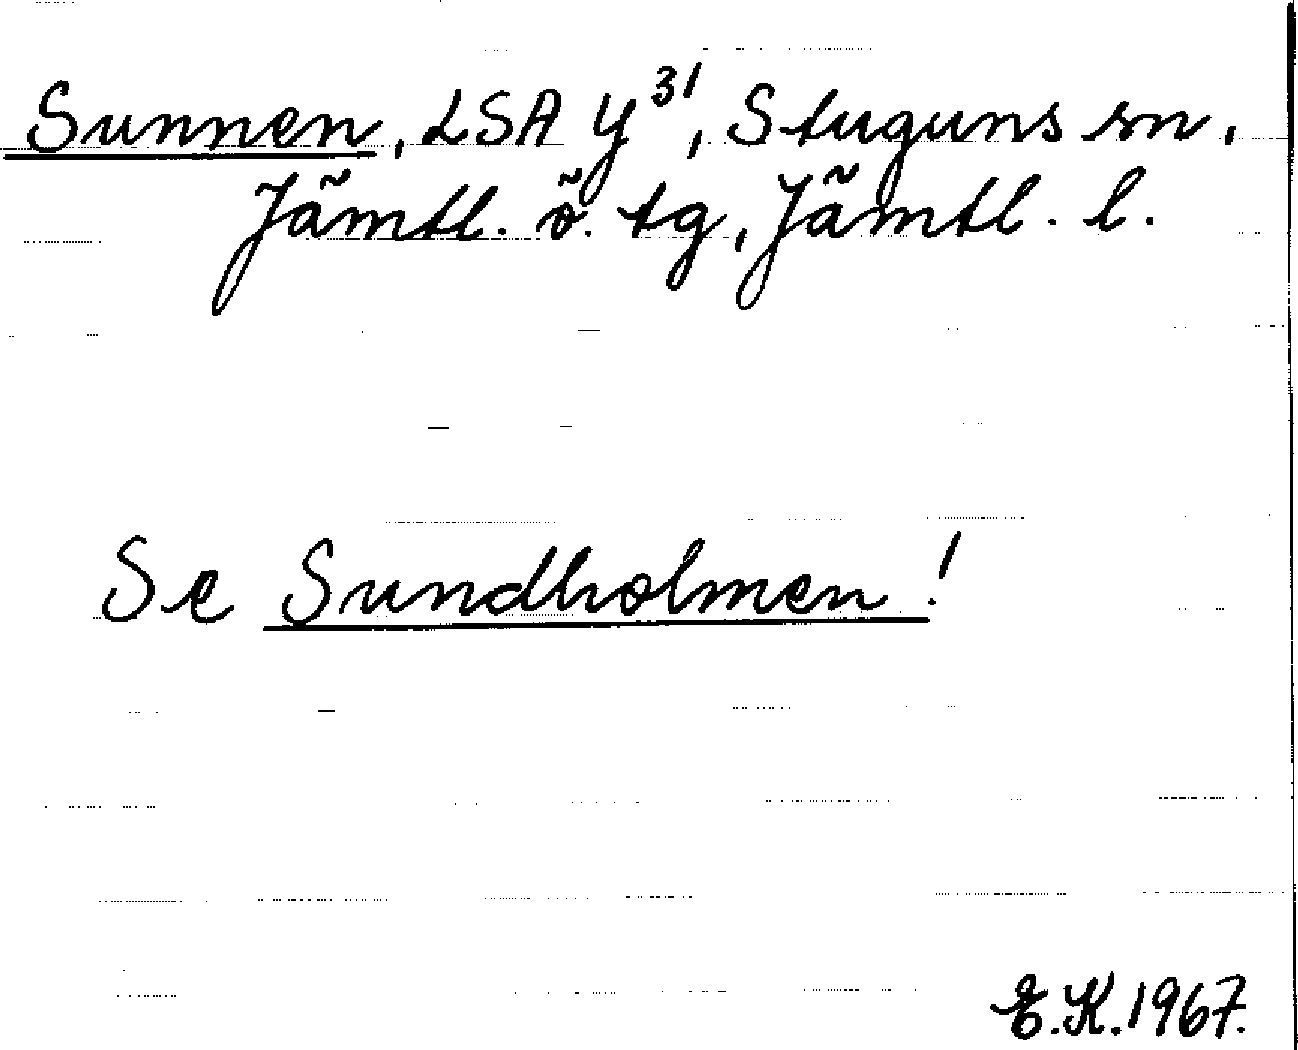 Sunnen, LSA Y³¹, Stuguns sn,
Jämtl. ö. tg, Jämtl. l.
Se Sundholmen!
E.K. 1967.